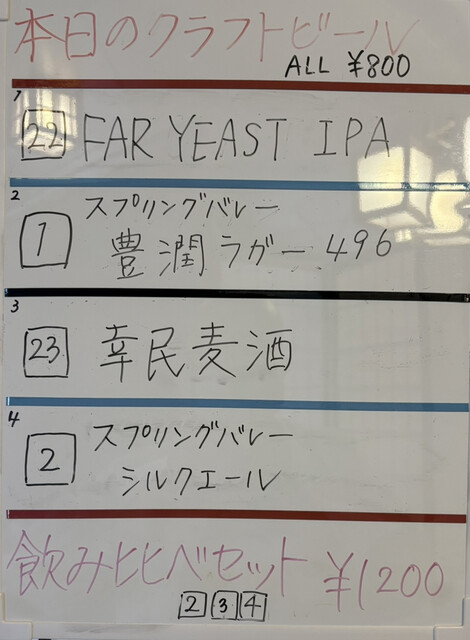 本日のクラフトビール
ALL ¥800
1
22 FAR YEAST IPA
2
スプリングバレー
1 豊潤ラガー 496
3
23 幸民麦酒
4
スプリングバレー
2 シルクエール
飲み比べセット ¥1200
2 3 4